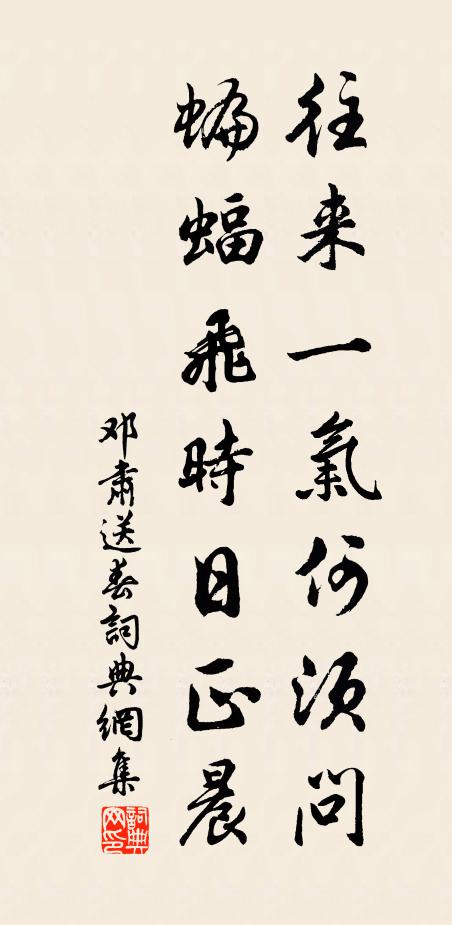 往来一氣何須問
蝙蝠飛時日正晨
邓肅送春詞典網集
詞典網印